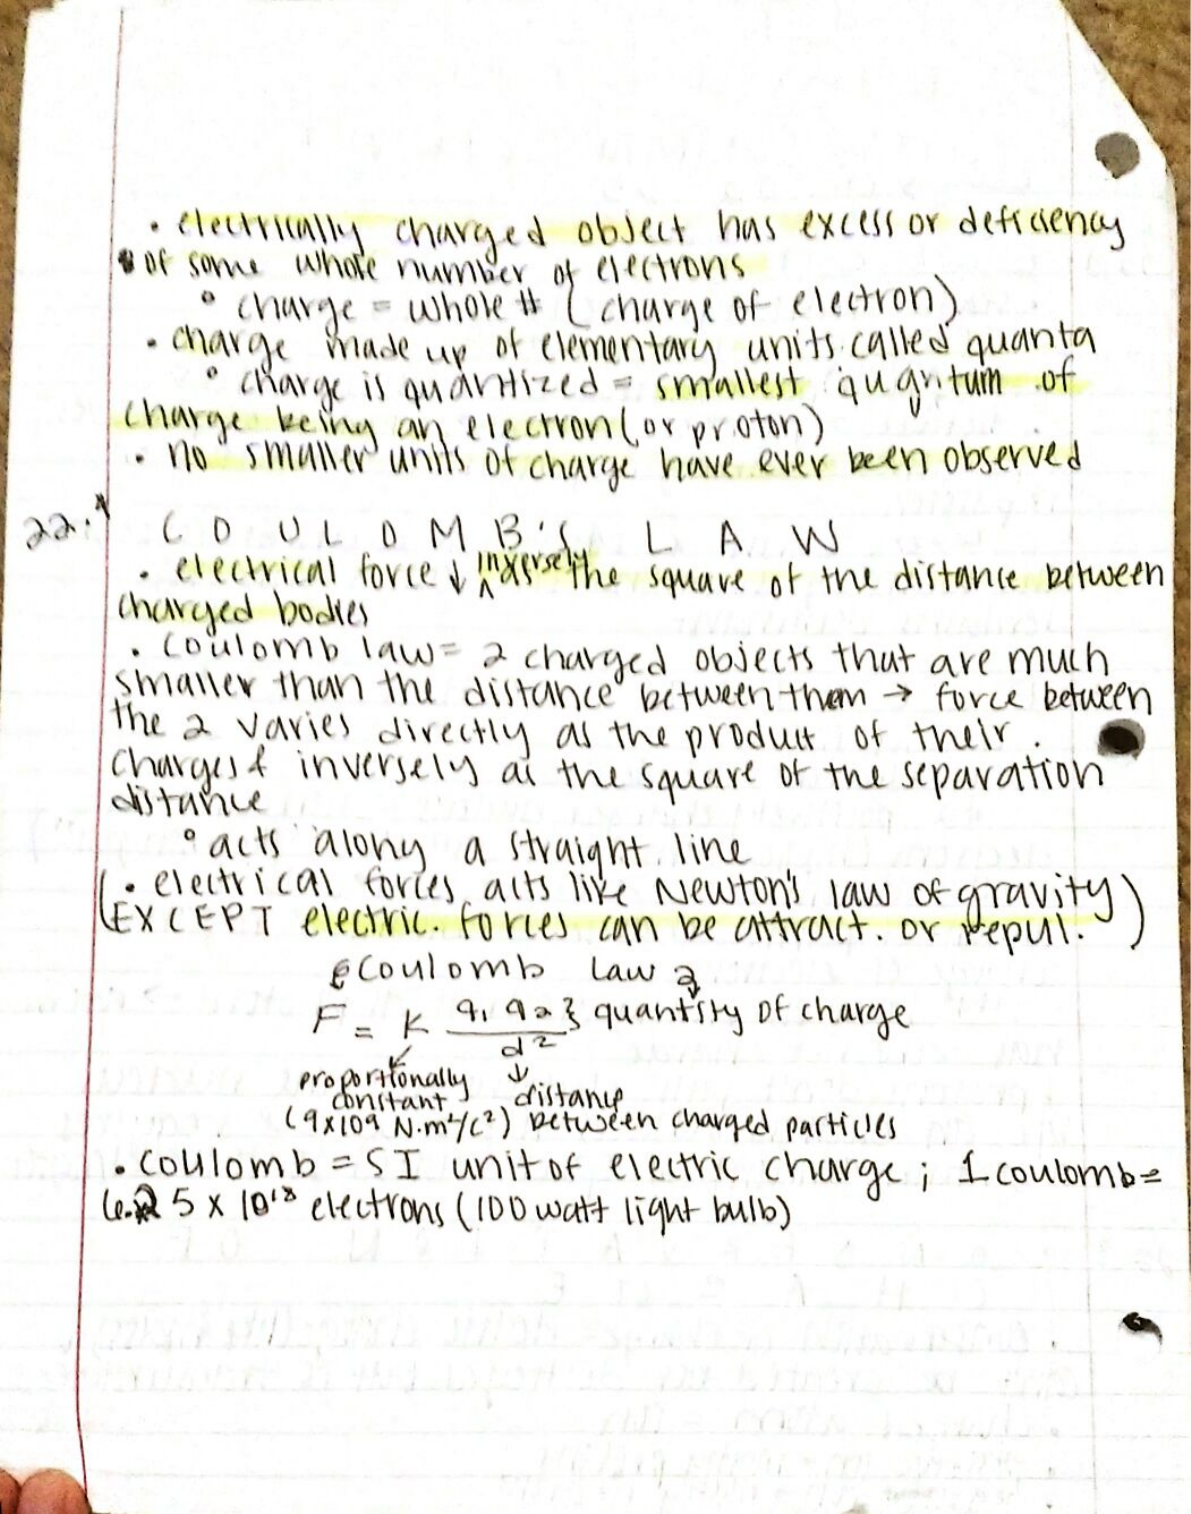 • electrically charged object has excess or deficiency
• of some whole number of electrons
° charge = whole # (charge of electron)
• charge made up of elementary units called quanta
° charge is quantized = smallest quantum of
charge being an electron (or proton)
• no smaller units of charge have ever been observed
22.4 COULOMB'S LAW
• electrical force ↓ inversely as the square of the distance between
charged bodies
• coulomb law = 2 charged objects that are much
smaller than the distance between them → force between
the 2 varies directly as the product of their
charges & inversely as the square of the separation
distance
° acts along a straight line
(• electrical forces acts like Newton's law of gravity)
(EXCEPT electric. forces can be attract. or repul.)
{ coulomb law }
F = K q₁ q₂ } quantity of charge
d²
proportionally ↓
constant distance
(9x10⁹ N·m²/c²) between charged particles
• coulomb = SI unit of electric charge; 1 coulomb =
6.25 x 10¹⁸ electrons (100 watt light bulb)